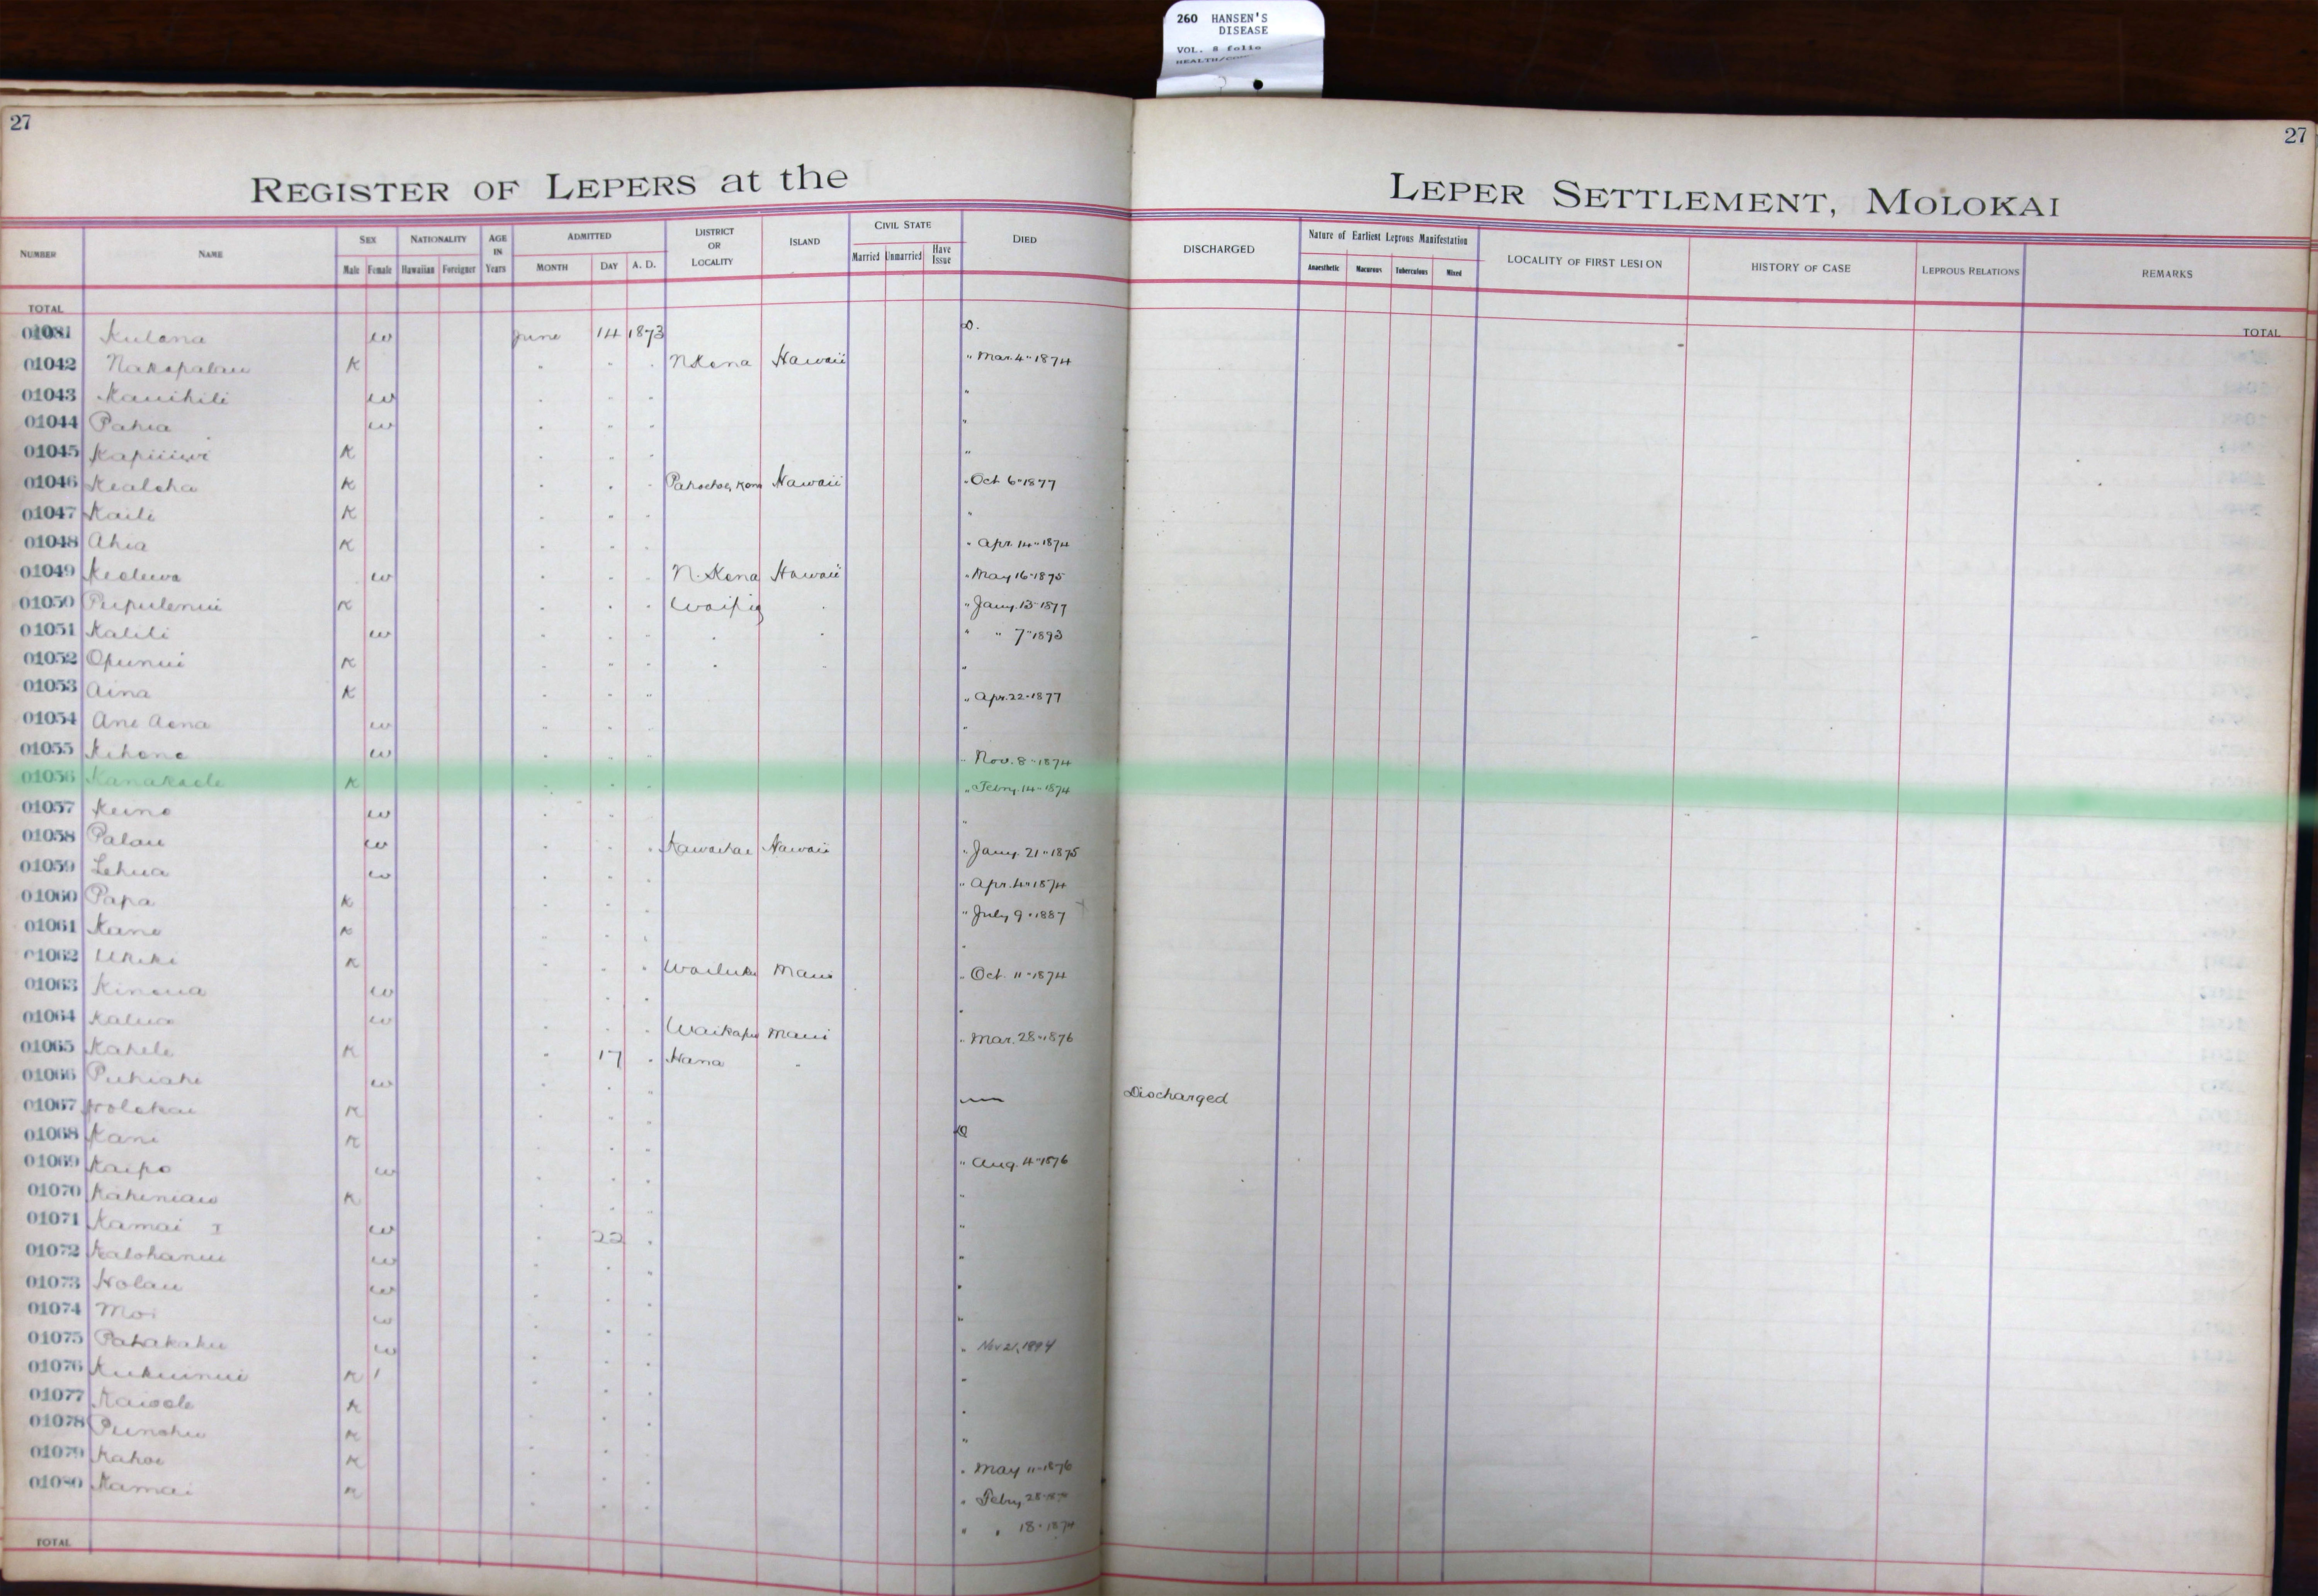 260 HANSEN'S
DISEASE
VOL. 8 folio
27
27
REGISTER OF LEPERS at the LEPER SETTLEMENT, MOLOKAI
NUMBER NAME SEX NATIONALITY AGE IN Years ADMITTED DISTRICT OR LOCALITY ISLAND CIVIL STATE DIED DISCHARGED Nature of Earliest Leprous Manifestation LOCALITY OF FIRST LESION HISTORY OF CASE LEPROUS RELATIONS REMARKS
Male Female Hawaiian Foreigner MONTH DAY A. D. Married Unmarried Have Issue Anaesthetic Macurous Tuberculous Mixed
TOTAL TOTAL
Kulana w June 14 1873 D.
01042 Nakapalau K " " " N Kona Hawaii " Mar. 4 " 1874
01043 Kauihili w " " " "
01044 Pahia w " " " "
01045 K " " " "
01046 Kealoha K " " " Hawaii " Oct 6 " 1877
01047 Kaili K " " " "
01048 Ahia K " " " " Apr. 14 " 1874
01049 w " " " N. Kona Hawaii " May 16 " 1875
01050 Pupulenui K " " " Waipio " " Jany. 13 " 1877
01051 Kalili w " " " " " " " 7 " 1893
01052 Opunui K " " " " " "
01053 Aina K " " " " Apr. 22 " 1877
01054 Ane Aona w " " " "
01055 Kehone w " " " " Nov. 8 " 1874
01056 Kanakaole K " " " " Febry. 14 " 1874
01057 Keino w " " " "
01058 Palau w " " " Kawaihae Hawaii " Jany. 21 " 1875
01059 Lehua w " " " " Apr. 4 " 1874
01060 Papa K " " " " July 9 " 1887
01061 Kane K " " " "
01062 Ukeke K " " " Wailuku Maui " Oct. 11 " 1874
01063 Kinoua w " " " "
01064 Kalua w " " " Waikapu Maui " Mar. 28 " 1876
01065 Kahele K " 17 " Hana "
01066 Puhiahi w " " " Discharged
01067 Holokai K " " " D
01068 Kani K " " " " Aug. 4 " 1876
01069 Kaipo w " " " "
01070 Kaheniau K " " " "
01071 Kamai I w " 22 " "
01072 Kalohanui w " " " "
01073 Holau w " " " "
01074 Moi w " " "
01075 Pahakahu w " " " " Nov 21, 1894
01076 Kukuinui K 1 " " " "
01077 Kaiole K " " " "
01078 Punohu K " " " "
01079 Kahoe K " " " " May 11 " 1876
01080 Kamai K " " " " Febry 28
" " 18 " 1874
TOTAL